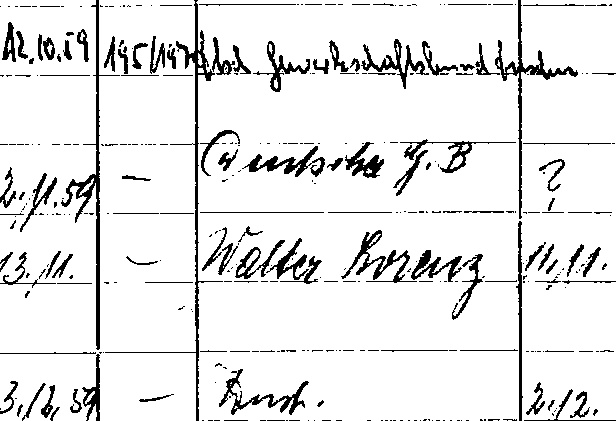 12.10.59 195/197 Dtsch Gewerkschaftsbund
2.11.59 — Deutscher G. B ?
13.11. — Walter Lorenz 11.11.
3.12.59 — 2.12.